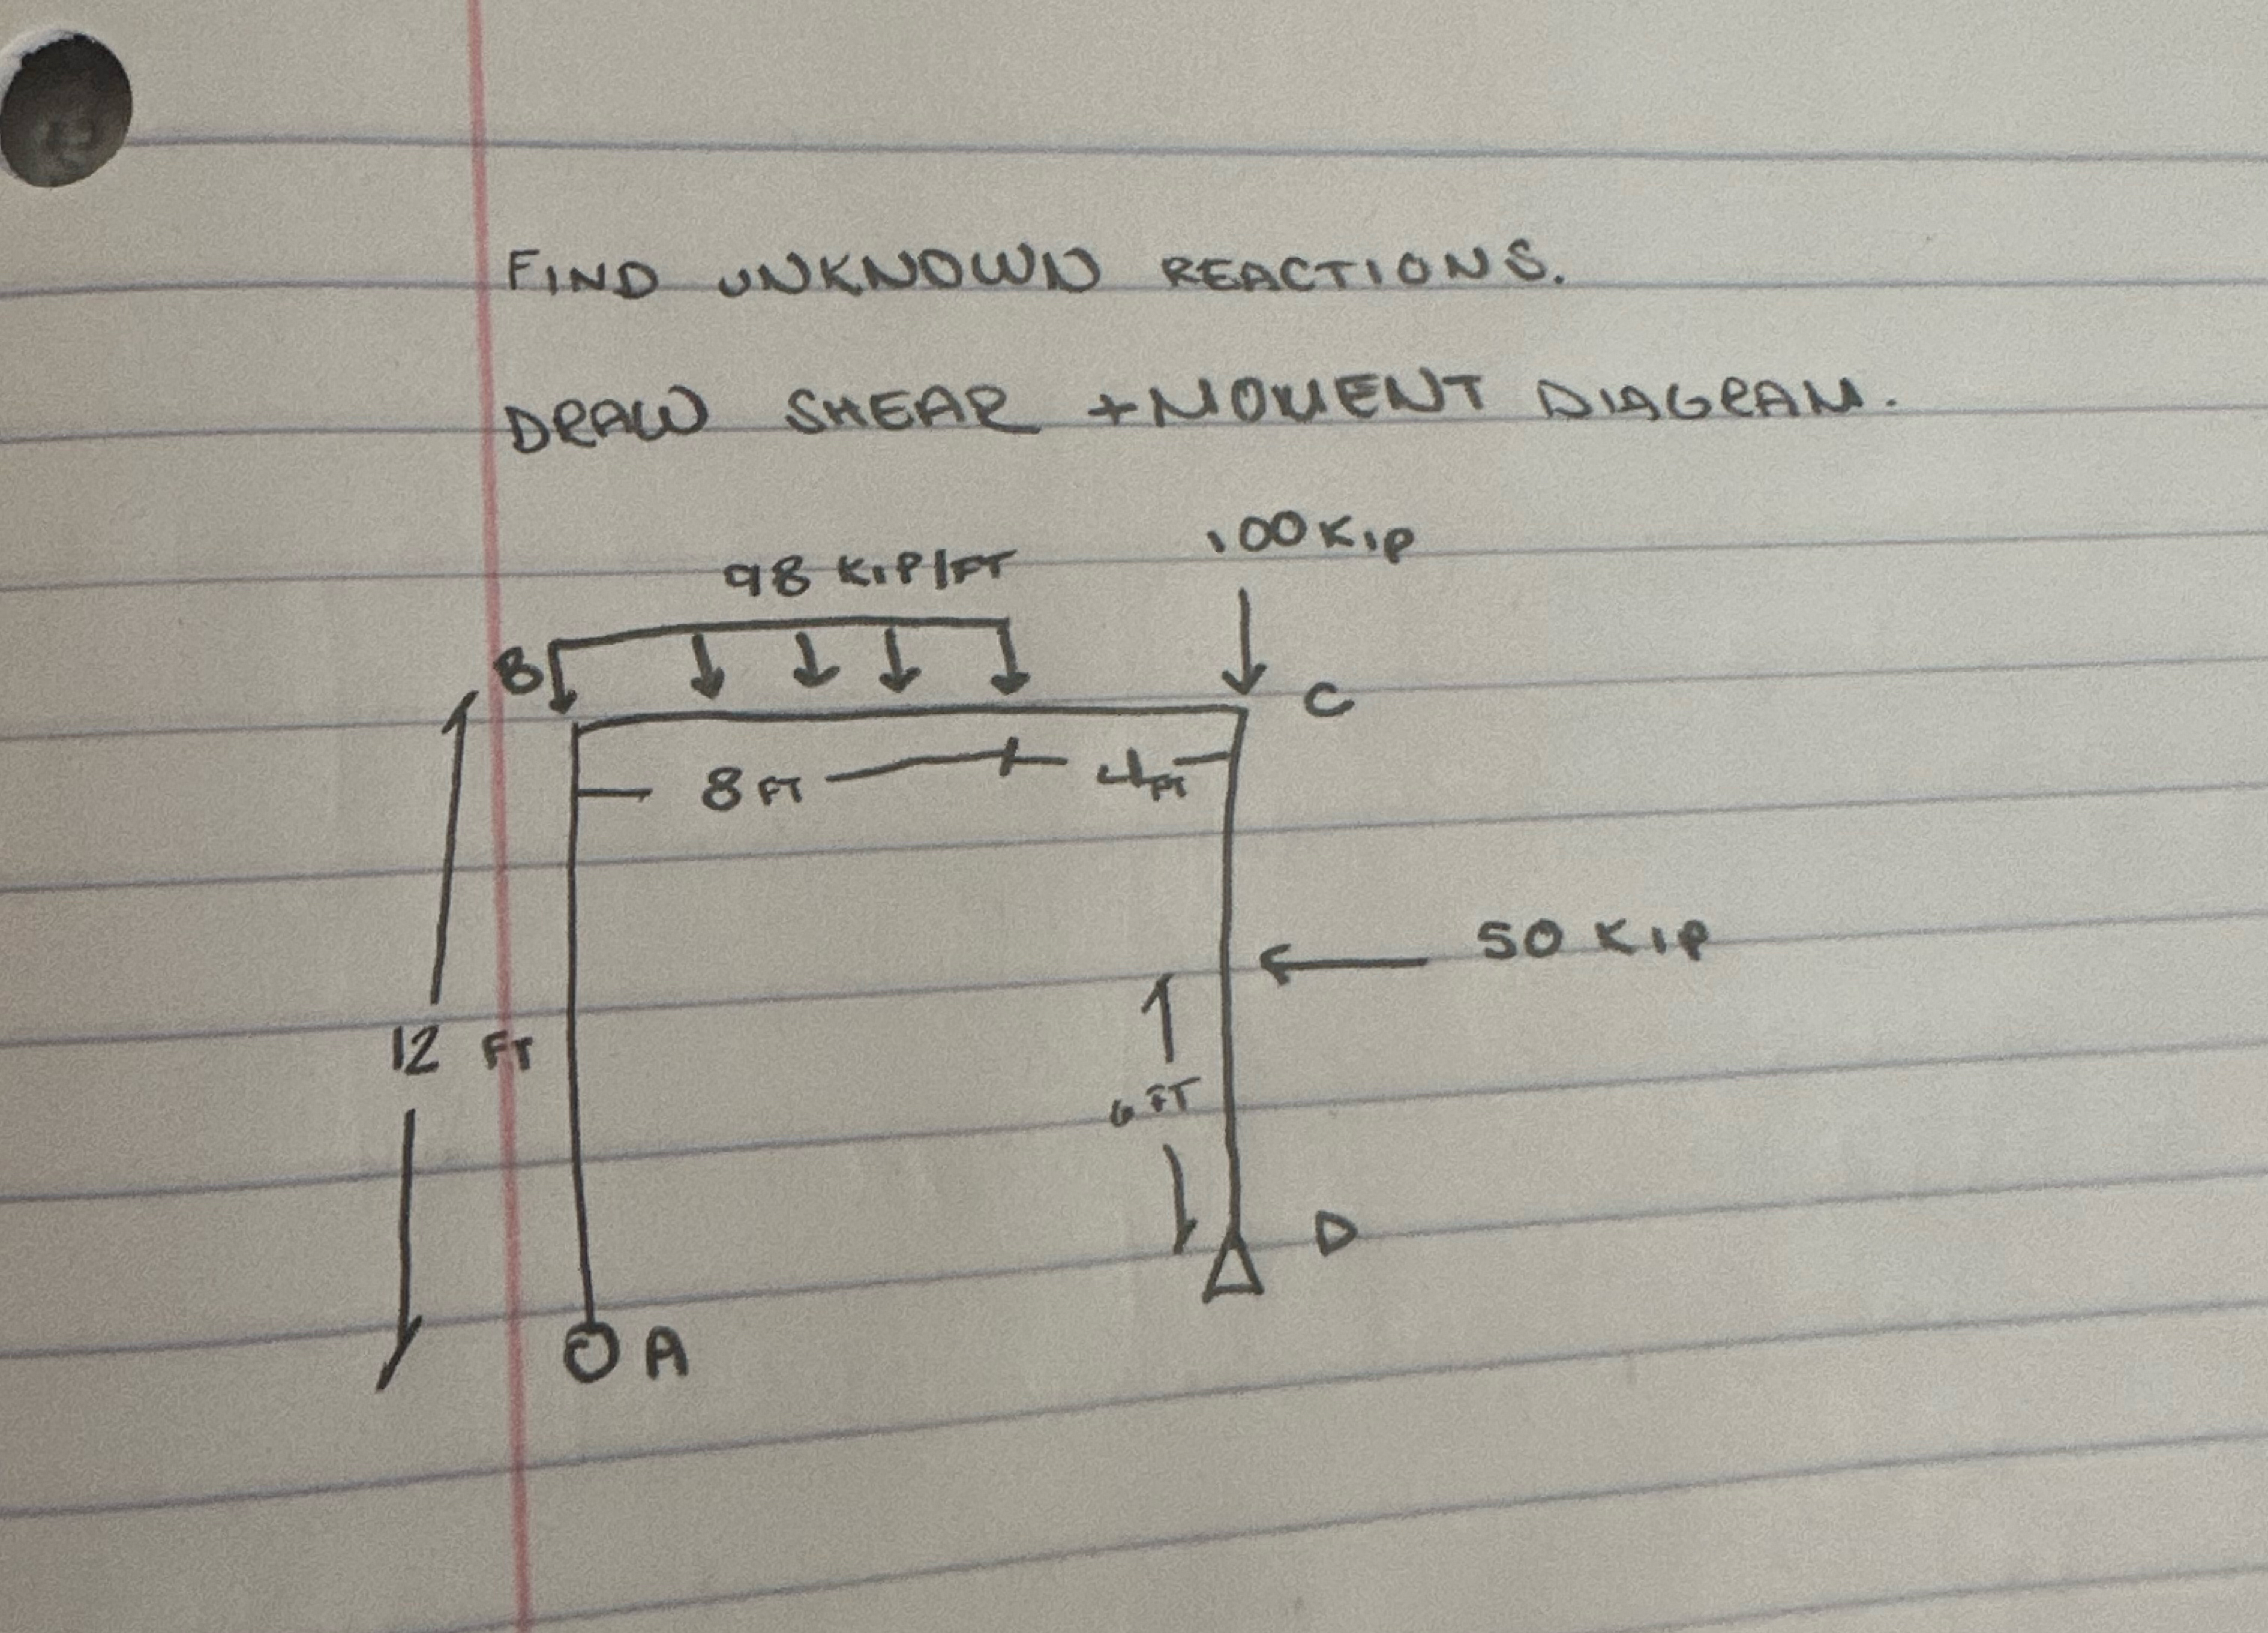 FIND UNKNOWN REACTIONS.
DRAW SHEAR + MOMENT DIAGRAM.
100 KIP
98 KIP/FT
B
C
8 FT
4 FT
50 KIP
12 FT
6 FT
D
A